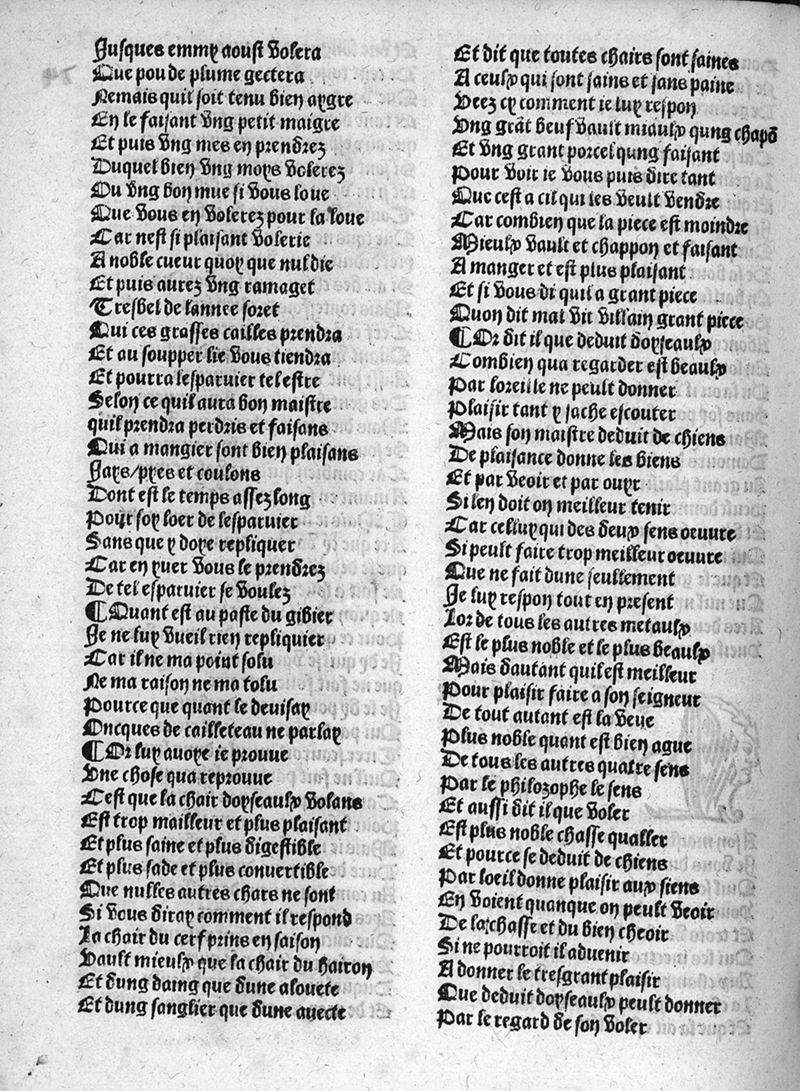 Jusques emmy aoust volera
Que pou de plume gectera
Nemais quil soit tenu bien aygre
En le faisant vng petit maigre
Et puis vng mes en prendrez
Duquel bien vng moys volerez
Ou vng bon mue si vous loue
Que vous en volerez pour la loue
Car nest si plaisant volerie
A noble cueur quoy que nul die
Et puis aurez vng ramaget
Tresbel de lannee soret
Qui ces grasses cailles prendra
Et au soupper lie vous tiendra
Et pourra lesparuier tel estre
Selon ce quil aura bon maistre
quil prendra perdris et faisans
Qui a mangier sont bien plaisans
Jays/pyes et coulons
Dont est le temps assez long
Pour soy loer de lesparuier
Sans que y doye repliquer
Car en yuer vous le prendrez
De tel esparuier se voulez
¶Quant est au paste du gibier
Je ne luy vueil rien repliquier
Car il ne ma point solu
Ne ma raison ne ma tolu
Pource que quant le deuisay
Oncques de cailleteau ne parlay
¶Or luy auoye ie prouue
Vne chose qua reprouue
Cest que la chair doyseaulx volans
Est trop mailleur et plus plaisant
Et plus saine et plus digestible
Et plus sade et plus conuertible
Que nulles autres chars ne sont
Si vous diray comment il respond
La chair du cerf prins en saison
Vault mieulx que la chair du hairon
Et dung daing que dune alouete
Et dung sanglier que dune auecte
Et dit que toutes chairs sont saines
A ceulx qui sont sains et sans paine
Veez cy comment ie luy respon
Vng grāt beuf vault miaulx qung chapō
Et vng grant porcel qung faisant
Pour voir ie vous puis dire tant
Que cest a cil qui les veult vendre
Car combien que la piece est moindre
Mieulx vault et chappon et faisant
A manger et est plus plaisant
Et si vous di quil a grant piece
Quon dit mal vit villain grant piece
¶Or dit il que deduit doyseaulx
Combien qua regarder est beaulx
Par loreille ne peult donner
Plaisir tant y sache escouter
Mais son maistre deduit de chiens
De plaisance donne les biens
Et par veoir et par ouyr
Si len doit on meilleur tenir
Car celluy qui des deux sens oeuure
Si peult faire trop meilleur oeuure
Que ne fait dune seullement
Je luy respon tout en present
Lor de tous les autres metaulx
Est le plus noble et le plus beaulx
Mais dautant quil est meilleur
Pour plaisir faire a son seigneur
De tout autant est la veue
Plus noble quant est bien ague
De tous les autres quatre sens
Par le philozophe le sens
Et aussi dit il que voler
Est plus noble chasse qualler
Et pource se deduit de chiens
Par loeil donne plaisir aux siens
En voient quanque on peult veoir
De la chasse et du bien cheoir
Si ne pourroit il aduenir
A donner le tresgrant plaisir
Que deduit doyseaulx peult donner
Par le regard de son voler